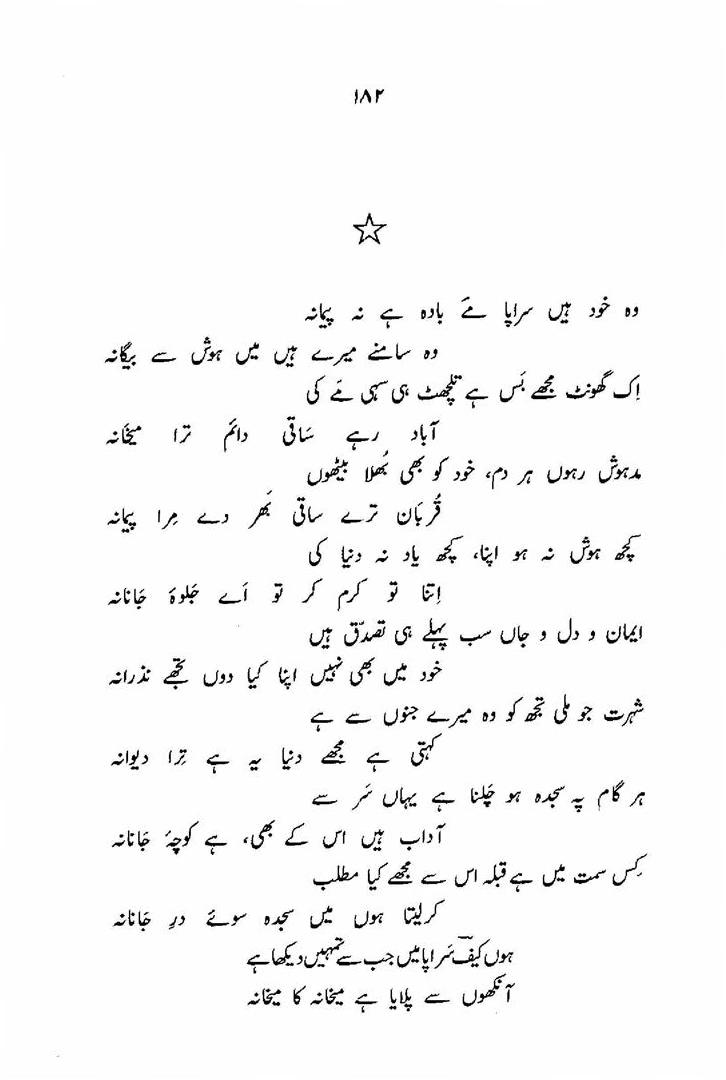 ۱۸۲
وہ خود ہیں سراپا مَے بادہ ہے نہ پیمانہ
وہ سامنے میرے ہیں میں ہوش سے بیگانہ
اِک گھونٹ مجھے بَس ہے تلچھٹ ہی سہی مَے کی
آباد رہے سَاقی دائم ترا میخَانہ
مدہوش رہوں ہر دم، خود کو بھی بُھلا بیٹھوں
قُربَان ترے ساقی بَھر دے مِرا پیمانہ
کچھ ہوش نہ ہو اپنا، کچھ یاد نہ دنیا کی
اِتنا تو کرم کر تو اَے جَلوۂ جَانانہ
ایمان و دل و جاں سب پہلے ہی تصدّق ہیں
خود میں بھی نہیں اپنا کیا دوں تجھے نذرانہ
شہرت جو ملی تجھ کو وہ میرے جنوں سے ہے
کہتی ہے مجھے دنیا یہ ہے تِرا دیوانہ
ہر گام پہ سجدہ ہو چَلنا ہے یہاں سَر سے
آداب ہیں اس کے بھی، ہے کوچۂ جَانانہ
کِس سمت میں ہے قبلہ اس سے مجھے کیا مطلب
کرلیتا ہوں میں سجدہ سوئے درِ جَانانہ
ہوں کیف سَراپا میں جب سے تمہیں دیکھا ہے
آنکھوں سے پلایا ہے میخانہ کا میخانہ